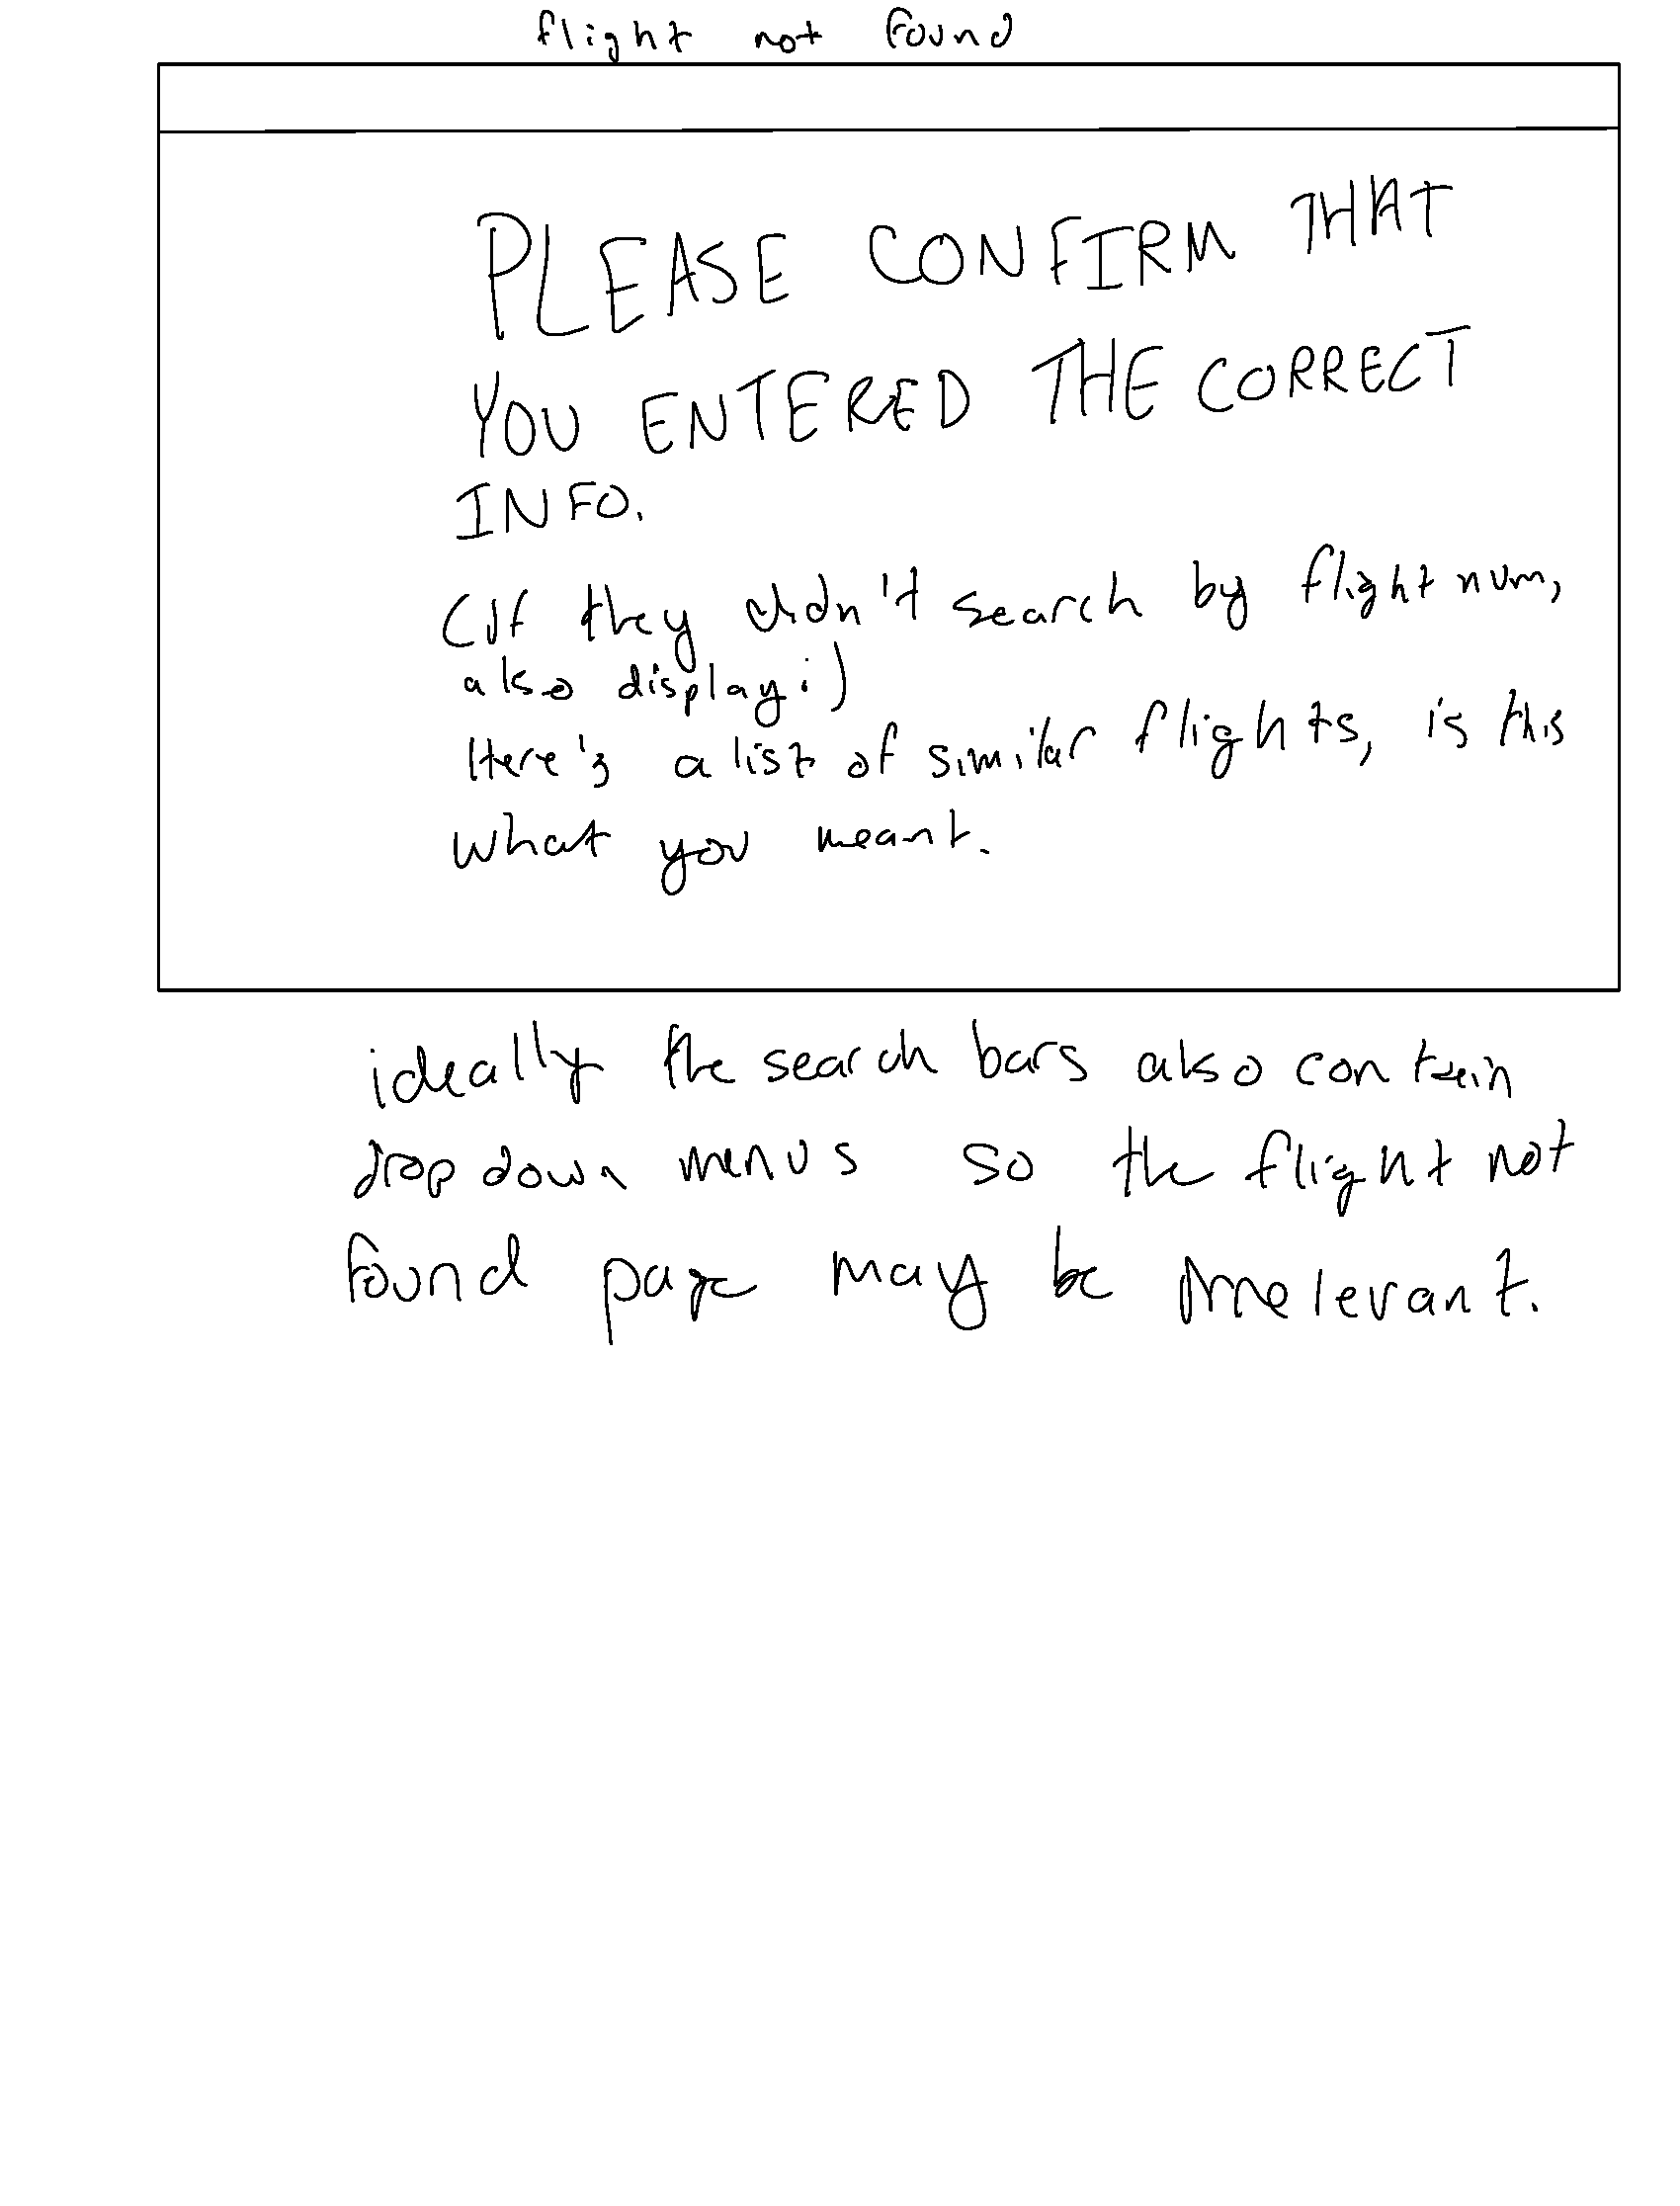 flight not found
PLEASE CONFIRM THAT
YOU ENTERED THE CORRECT
INFO.
(If they didn't search by flight num,
also display:)
Here's a list of similar flights, is this
what you meant.
ideally the search bars also contain
drop down menus so the flight not
found page may be irrelevant.